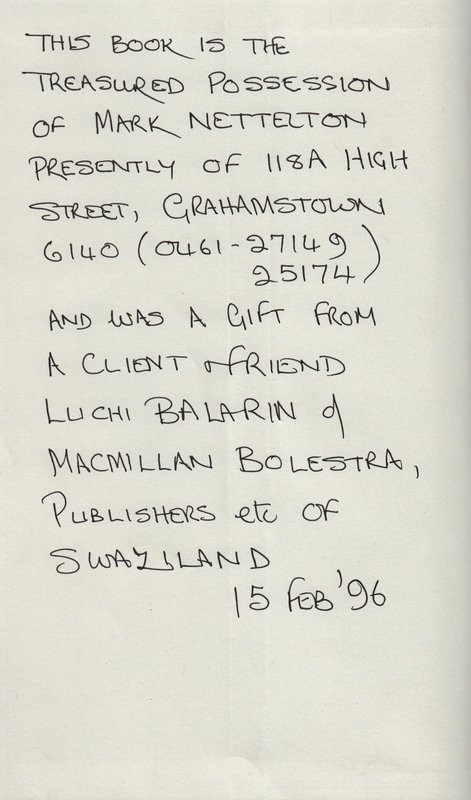 THIS BOOK IS THE
TREASURED POSSESSION
OF MARK NETTELTON
PRESENTLY OF 118A HIGH
STREET, GRAHAMSTOWN
6140 (0461-27149
25174)
AND WAS A GIFT FROM
A CLIENT & FRIEND
LUCHI BALARIN of
MACMILLAN BOLESTRA,
PUBLISHERS etc OF
SWAZILAND
15 FEB '96